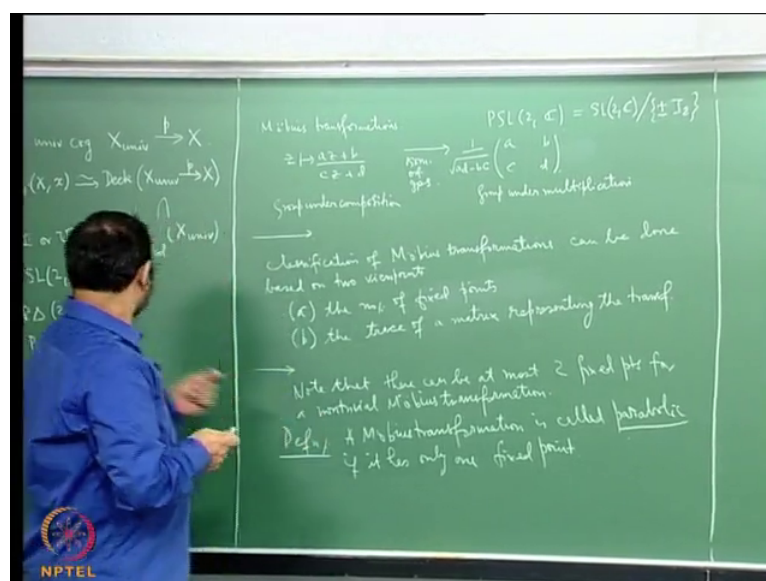 univ cog X_univ →p X
(X, x) ≃ Deck (X_univ →p X)
(X_univ).
SL(2,
PΔ (2
Möbius transformations PSL(2, ℂ) = SL(2, ℂ)/{± I₂}
z ↦ (az+b)/(cz+d) →isom. of gps. 1/√(ad-bc) (a b; c d)
Group under composition Group under multiplication
→ Classification of Möbius transformations can be done
based on two viewpoints
(a) the no/. of fixed points
(b) the trace of a matrix representing the transf.
→ Note that there can be at most 2 fixed pts for
a nontrivial Möbius transformation.
Defn/ A Möbius transformation is called parabolic
if it has only one fixed point
NPTEL